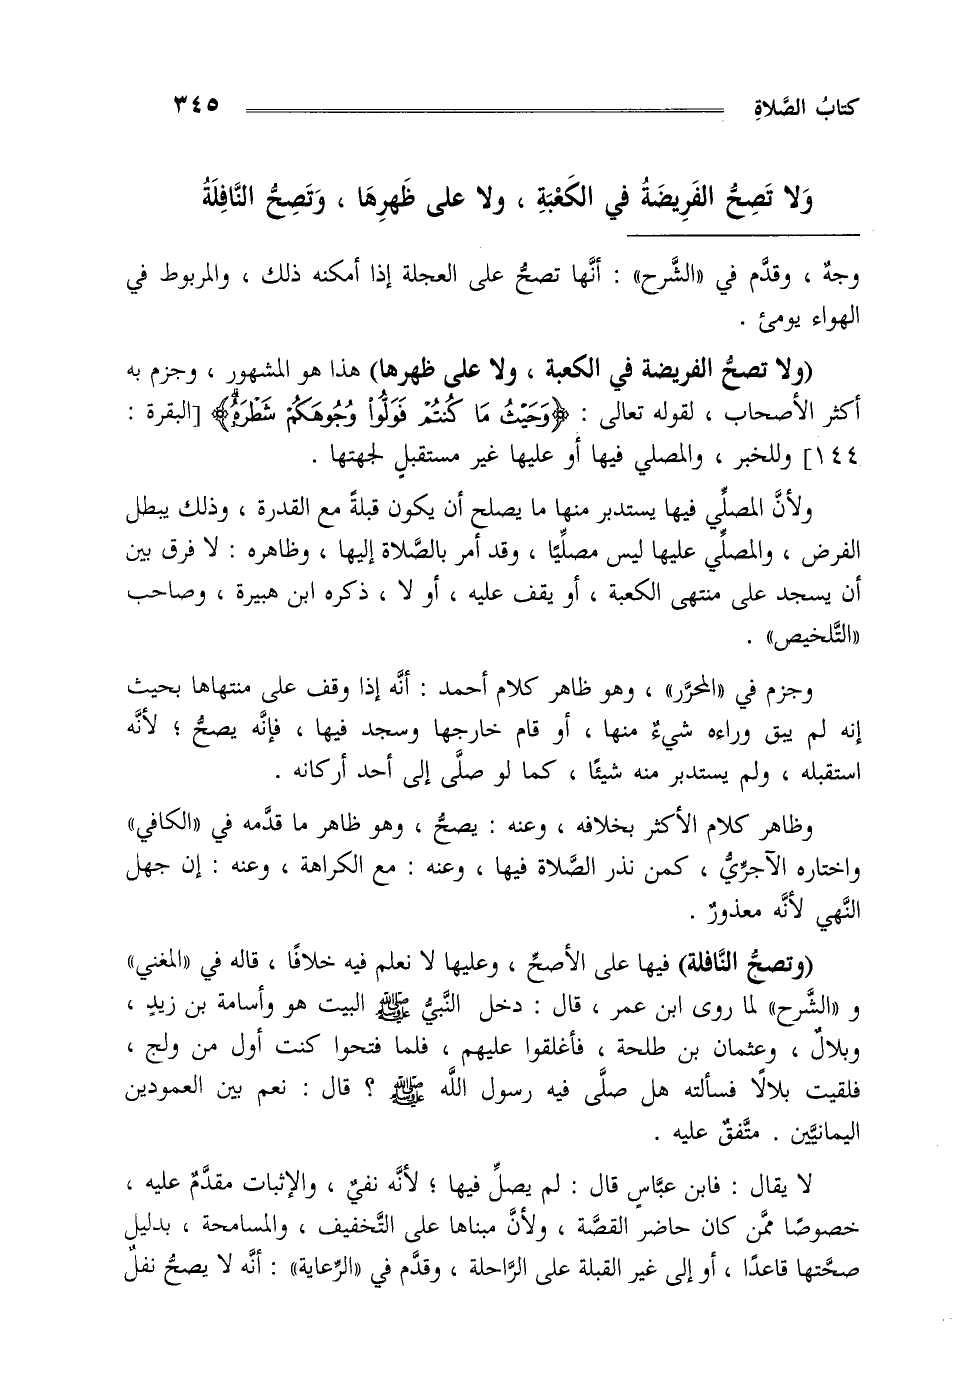 كتابُ الصَّلاةِ ٣٤٥
وَلا تَصِحُّ الفَرِيضَةُ في الكَعْبَةِ ، ولا على ظَهرِهَا ، وَتَصِحُّ النَّافِلَةُ
وجهٌ ، وقدَّم في «الشَّرح» : أنَّها تصحُّ على العجلة إذا أمكنه ذلك ، والمربوط في
الهواء يومئ .
(ولا تصحُّ الفريضة في الكعبة ، ولا على ظهرها) هذا هو المشهور ، وجزم به
أكثر الأصحاب ، لقوله تعالى : ﴿وَحَيْثُ مَا كُنتُمْ فَوَلُّواْ وُجُوهَكُمْ شَطْرَهُۥ﴾ [البقرة :
١٤٤] وللخبر ، والمصلي فيها أو عليها غير مستقبلٍ لجهتها .
ولأنَّ المصلِّي فيها يستدبر منها ما يصلح أن يكون قبلةً مع القدرة ، وذلك يبطل
الفرض ، والمصلِّي عليها ليس مصلِّيًا ، وقد أمر بالصَّلاة إليها ، وظاهره : لا فرق بين
أن يسجد على منتهى الكعبة ، أو يقف عليه ، أو لا ، ذكره ابن هبيرة ، وصاحب
«التَّلخيص» .
وجزم في «المحرَّر» ، وهو ظاهر كلام أحمد : أنَّه إذا وقف على منتهاها بحيث
إنه لم يبق وراءه شيءٌ منها ، أو قام خارجها وسجد فيها ، فإنَّه يصحُّ ؛ لأنَّه
استقبله ، ولم يستدبر منه شيئًا ، كما لو صلَّى إلى أحد أركانه .
وظاهر كلام الأكثر بخلافه ، وعنه : يصحُّ ، وهو ظاهر ما قدَّمه في «الكافي»
واختاره الآجرِّيُّ ، كمن نذر الصَّلاة فيها ، وعنه : مع الكراهة ، وعنه : إن جهل
النَّهي لأنَّه معذورٌ .
(وتصحُّ النَّافلة) فيها على الأصحِّ ، وعليها لا نعلم فيه خلافًا ، قاله في «المغني»
و «الشَّرح» لما روى ابن عمر ، قال : دخل النَّبيُّ ﷺ البيت هو وأسامة بن زيدٍ ،
وبلالٌ ، وعثمان بن طلحة ، فأغلقوا عليهم ، فلما فتحوا كنت أول من ولج ،
فلقيت بلالًا فسألته هل صلَّى فيه رسول اللَّه ﷺ ؟ قال : نعم بين العمودين
اليمانيَّين . متَّفقٌ عليه .
لا يقال : فابن عبَّاسٍ قال : لم يصلِّ فيها ؛ لأنَّه نفيٌ ، والإثبات مقدَّمٌ عليه ،
خصوصًا ممَّن كان حاضر القصَّة ، ولأنَّ مبناها على التَّخفيف ، والمسامحة ، بدليل
صحَّتها قاعدًا ، أو إلى غير القبلة على الرَّاحلة ، وقدَّم في «الرِّعاية» : أنَّه لا يصحُّ نفلٌ